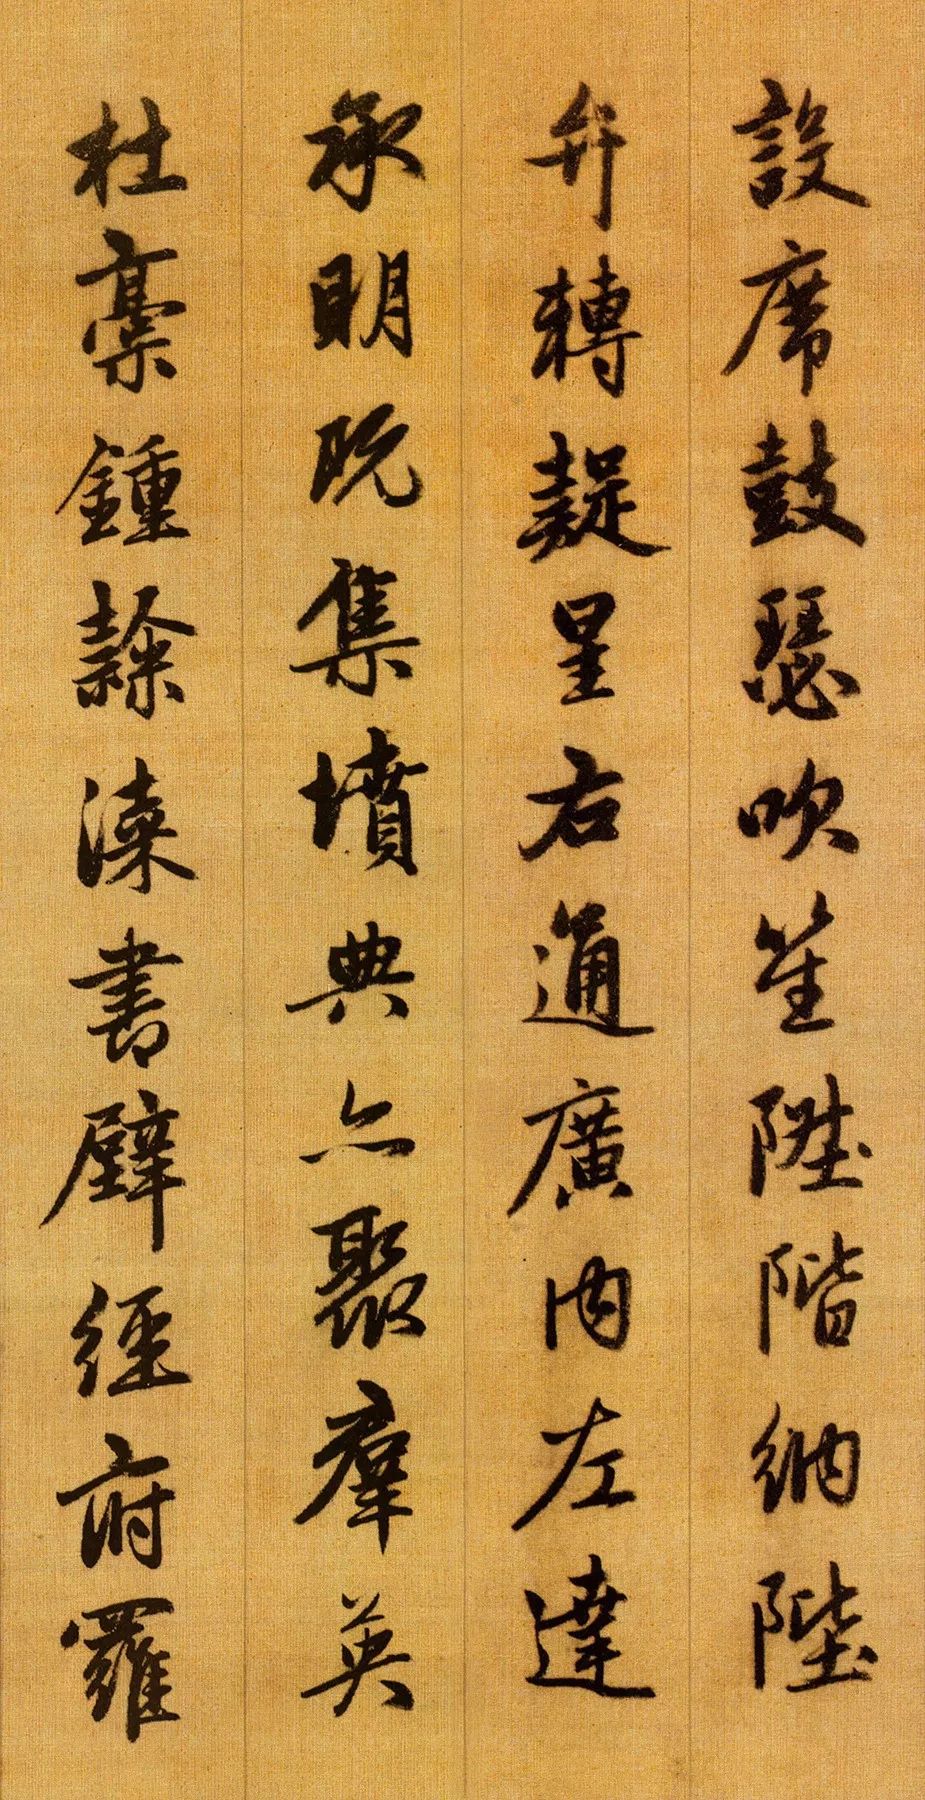 設席鼓瑟吹笙陞階納陛
弁轉疑星右通廣内左達
承明既集墳典亦聚群英
杜稾鍾隸漆書壁經府羅